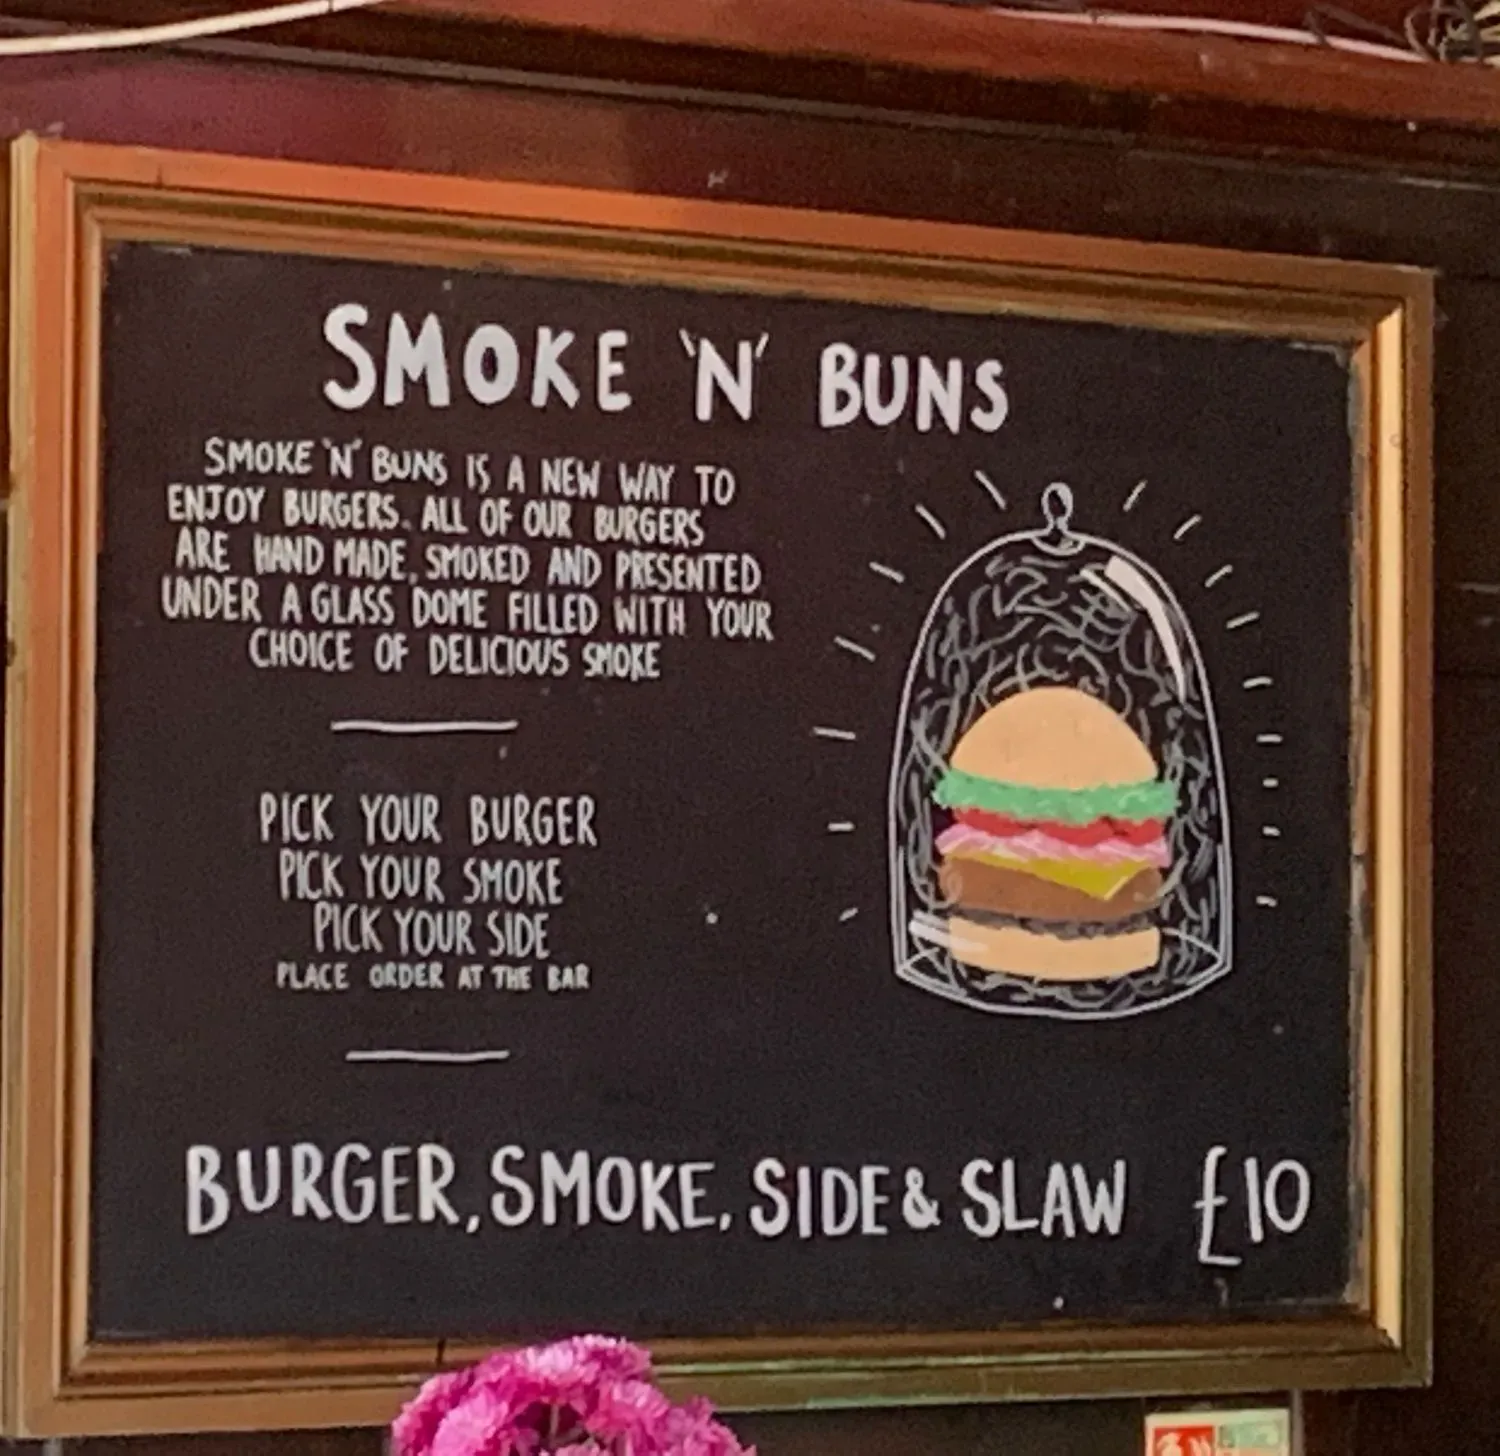 SMOKE 'N' BUNS
SMOKE 'N' BUNS IS A NEW WAY TO
ENJOY BURGERS. ALL OF OUR BURGERS
ARE HAND MADE, SMOKED AND PRESENTED
UNDER A GLASS DOME FILLED WITH YOUR
CHOICE OF DELICIOUS SMOKE
PICK YOUR BURGER
PICK YOUR SMOKE
PICK YOUR SIDE
PLACE ORDER AT THE BAR
BURGER, SMOKE, SIDE & SLAW £10